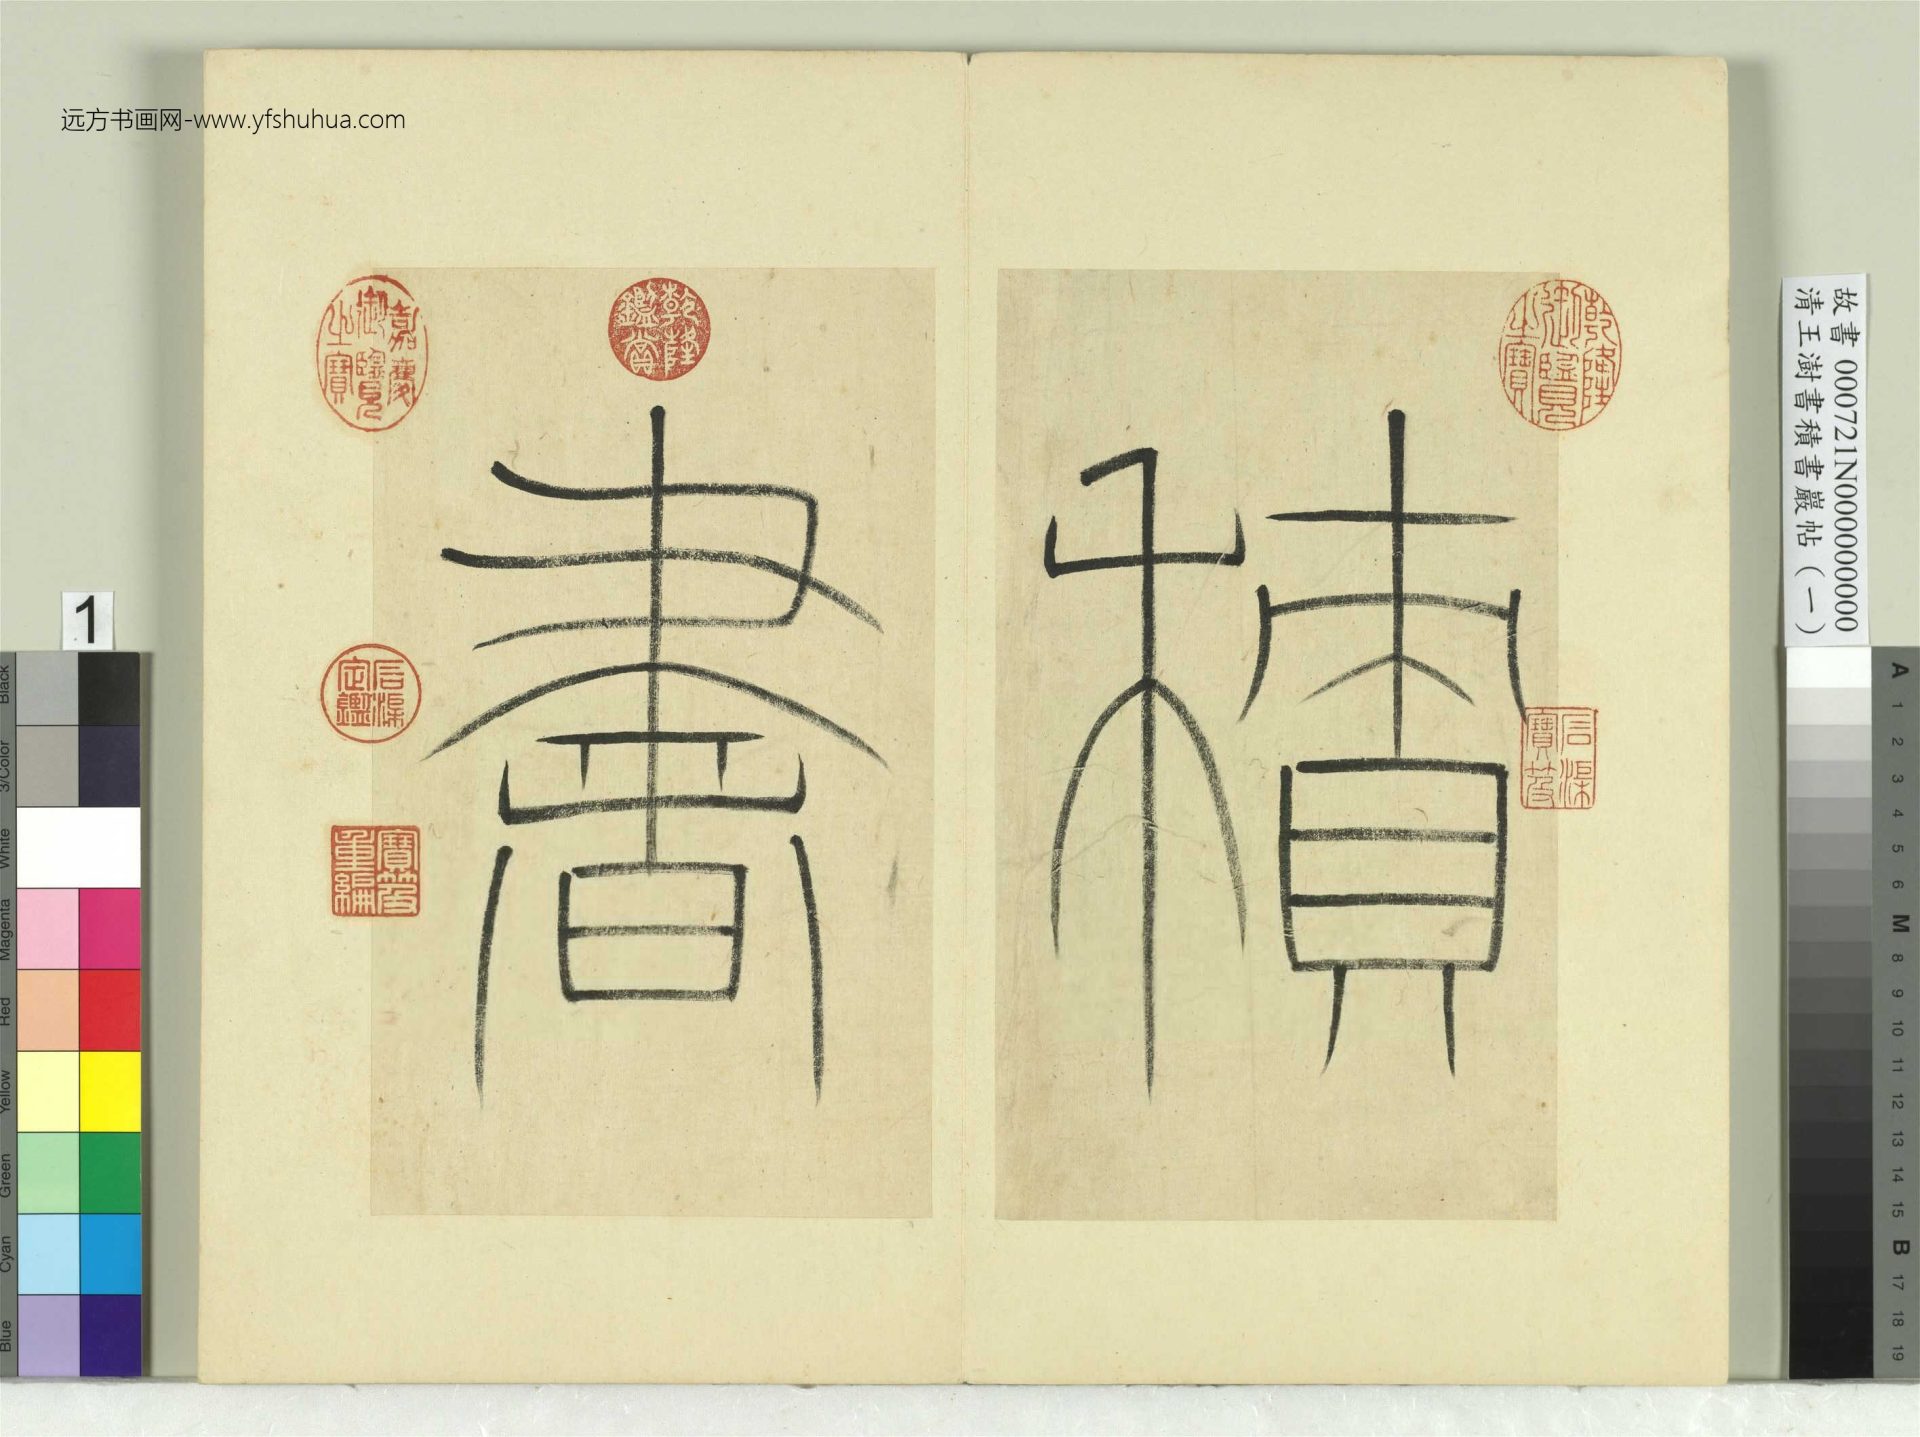 远方书画网-www.yfshuhua.com
積
書
乾隆御覽之寶
石渠寶笈
乾隆鑑賞
嘉慶御覽之寶
石渠定鑑
寶笈重編
故書 000721N000000000
清王澍書積書巖帖(一)
1
Black
3/Color
White
Magenta
Red
Yellow
Green
Cyan
Blue
A
1
2
3
4
5
6
M
8
9
10
11
12
13
14
15
B
17
18
19